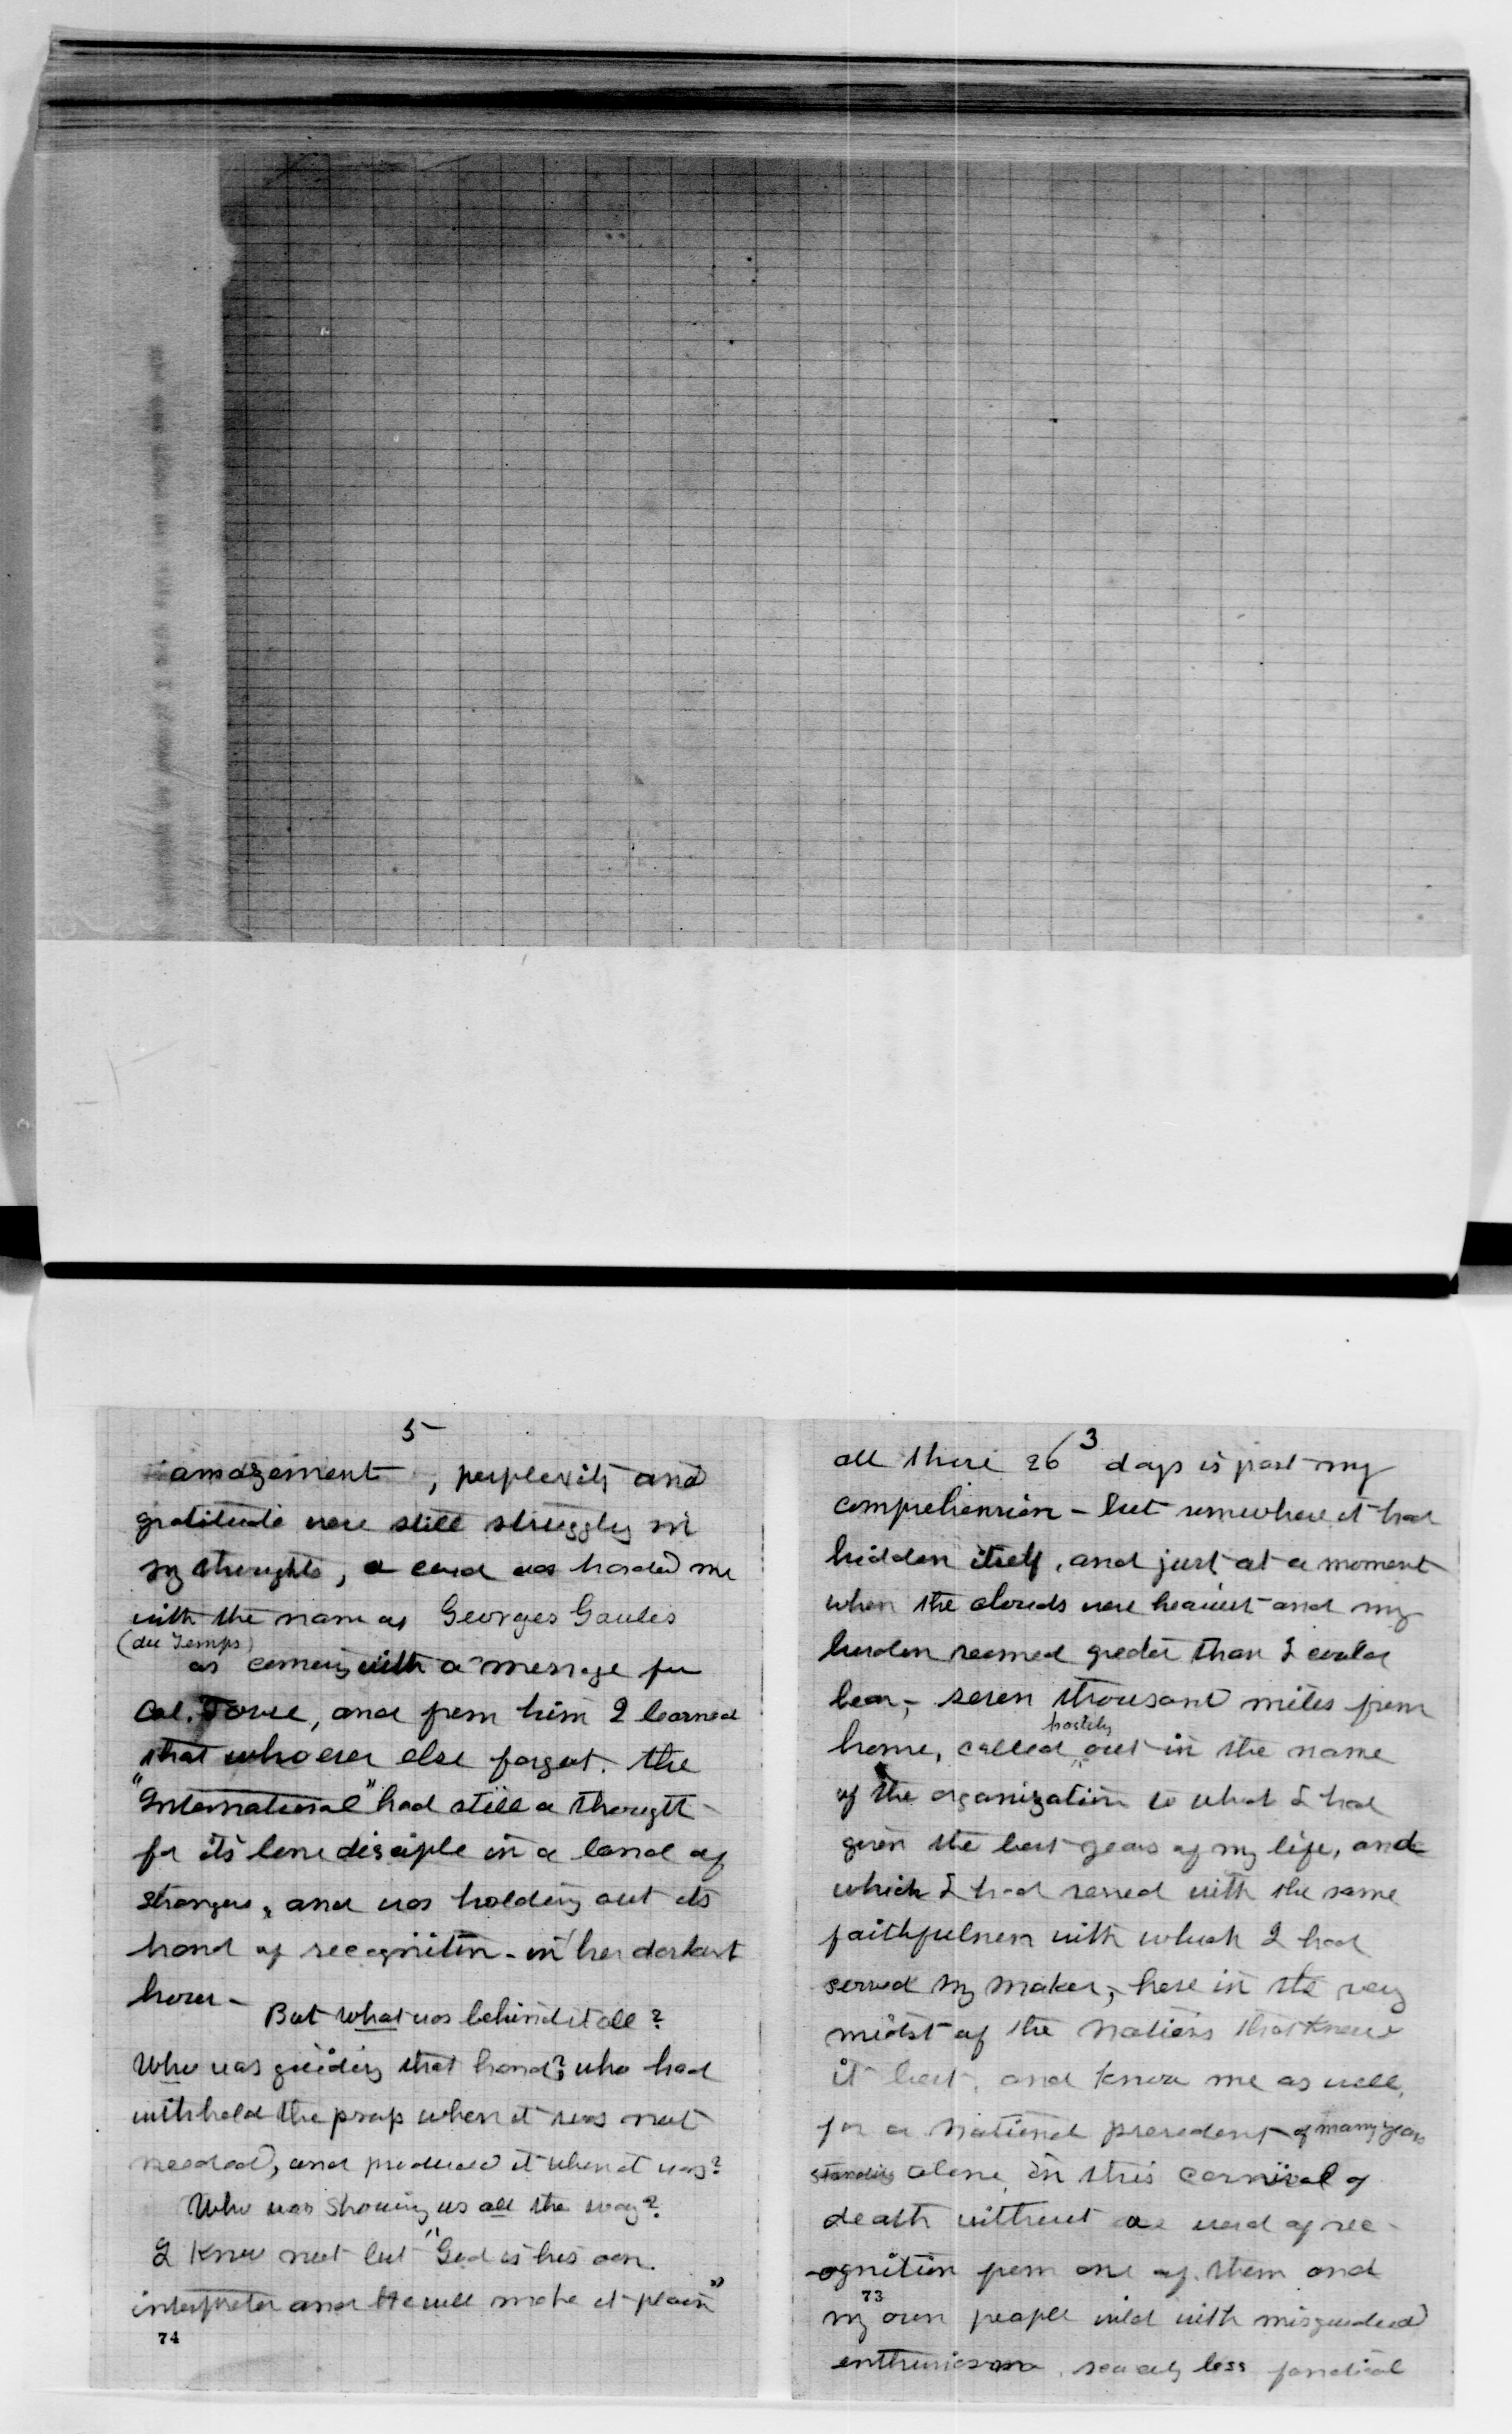 5
amazement, perplexity and
gratitude were still struggling in
my thoughts, a card was handed me
with the name of Georges Gaulis
(du Temps)
as coming with a message for
Col. and from him I learned
that whoever else forgot. the
"International" had still a thought
for its lone disciple in a land of
strangers, and was holding out its
hand of recognition - in her darkest
hour -
But what was behind it all?
Who was guiding that hand? who had
withheld the prop when it was not
needed, and produced it when it was?
Who was showing us all the way?
I know not but "God is his own
interpreter and He will make it plain"
74
3
all these 26 days is past my
comprehension - but somewhere it had
hidden itself, and just at a moment
when the clouds were heaviest and my
burden seemed greater than I could
bear, - seven thousand miles from
hastily
home, called out in the name
of the organization to what I had
given the best years of my life, and
which I had served with the same
faithfulness with which I had
served my maker, - here in the very
midst of the Nations that knew
it best, and knew me as well,
for a National president of many years
standing alone, in this carnival of
death without a word of rec-
-ognition from one of them and
73
my own people wild with misguided
enthusiasm, scarcely less fanatical